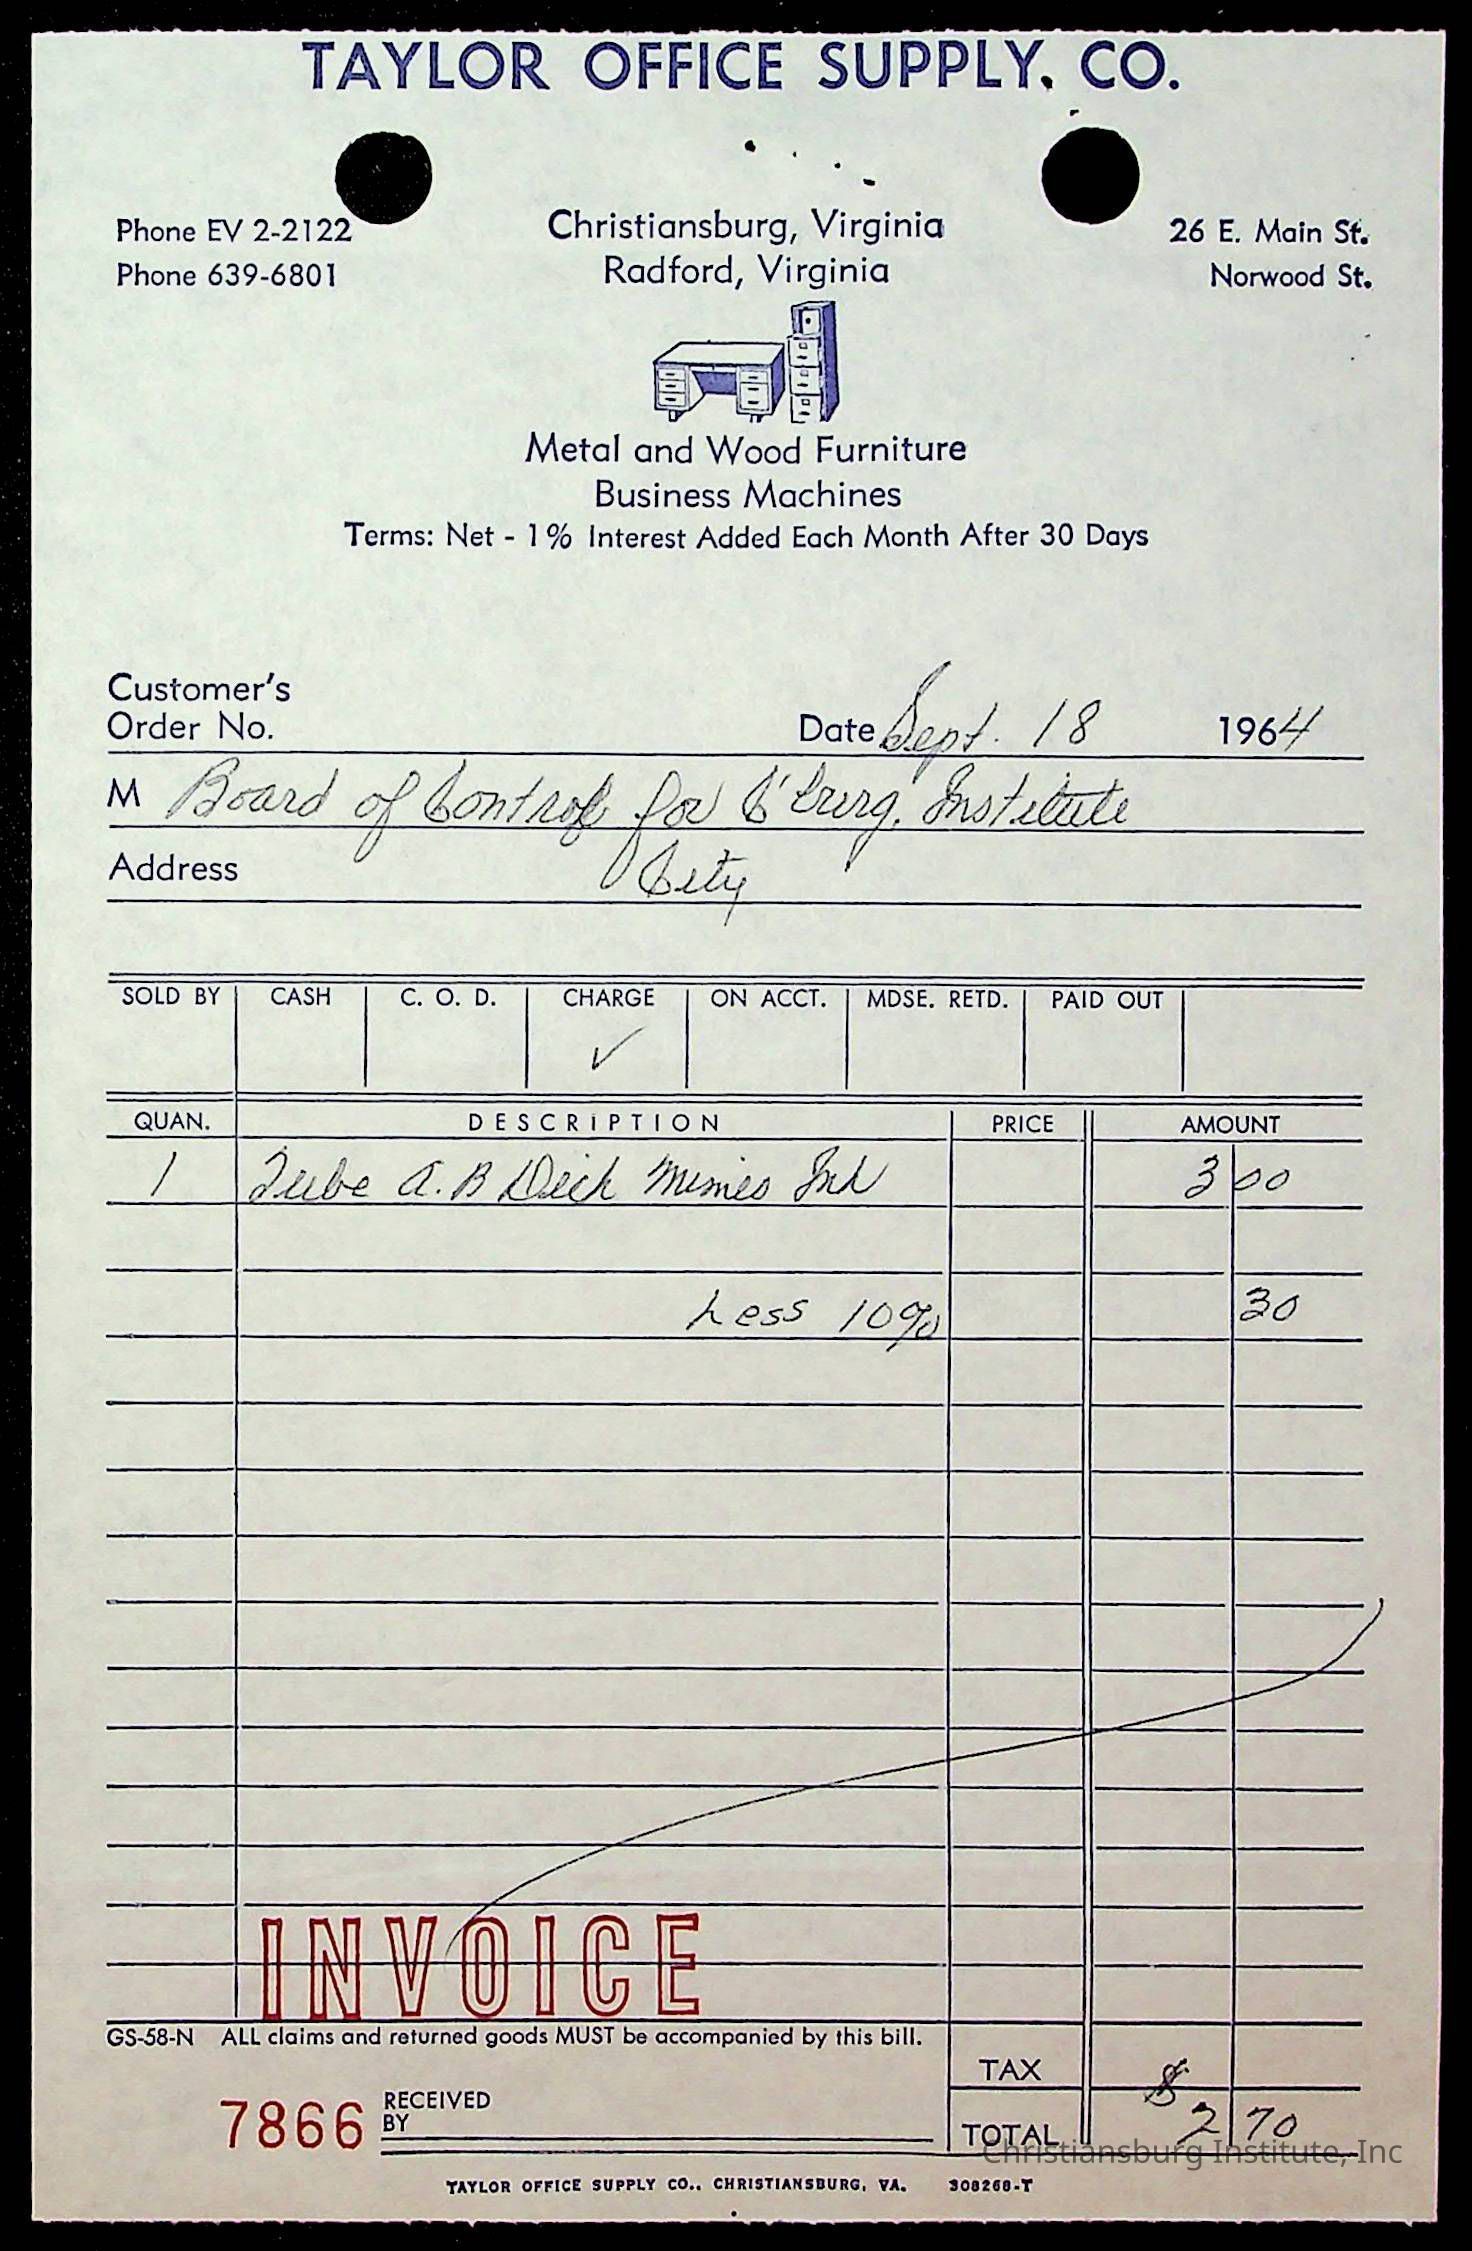 TAYLOR OFFICE SUPPLY. CO.
Phone EV 2-2122 Christiansburg, Virginia 26 E. Main St.
Phone 639-6801 Radford, Virginia Norwood St.
Metal and Wood Furniture
Business Machines
Terms: Net - 1% Interest Added Each Month After 30 Days
Customer's
Order No. Date Sept. 18 1964
M Board of Control for C'burg. Institute
Address City
SOLD BY CASH C. O. D. CHARGE ON ACCT. MDSE. RETD. PAID OUT
✓
QUAN. DESCRIPTION PRICE AMOUNT
1 Tube A.B Dick Mimeo Ink 3 00
Less 10% 30
INVOICE
GS-58-N ALL claims and returned goods MUST be accompanied by this bill.
TAX
7866 RECEIVED
BY
TOTAL $ 2 70
Christiansburg Institute, Inc
TAYLOR OFFICE SUPPLY CO., CHRISTIANSBURG, VA. 308268-T